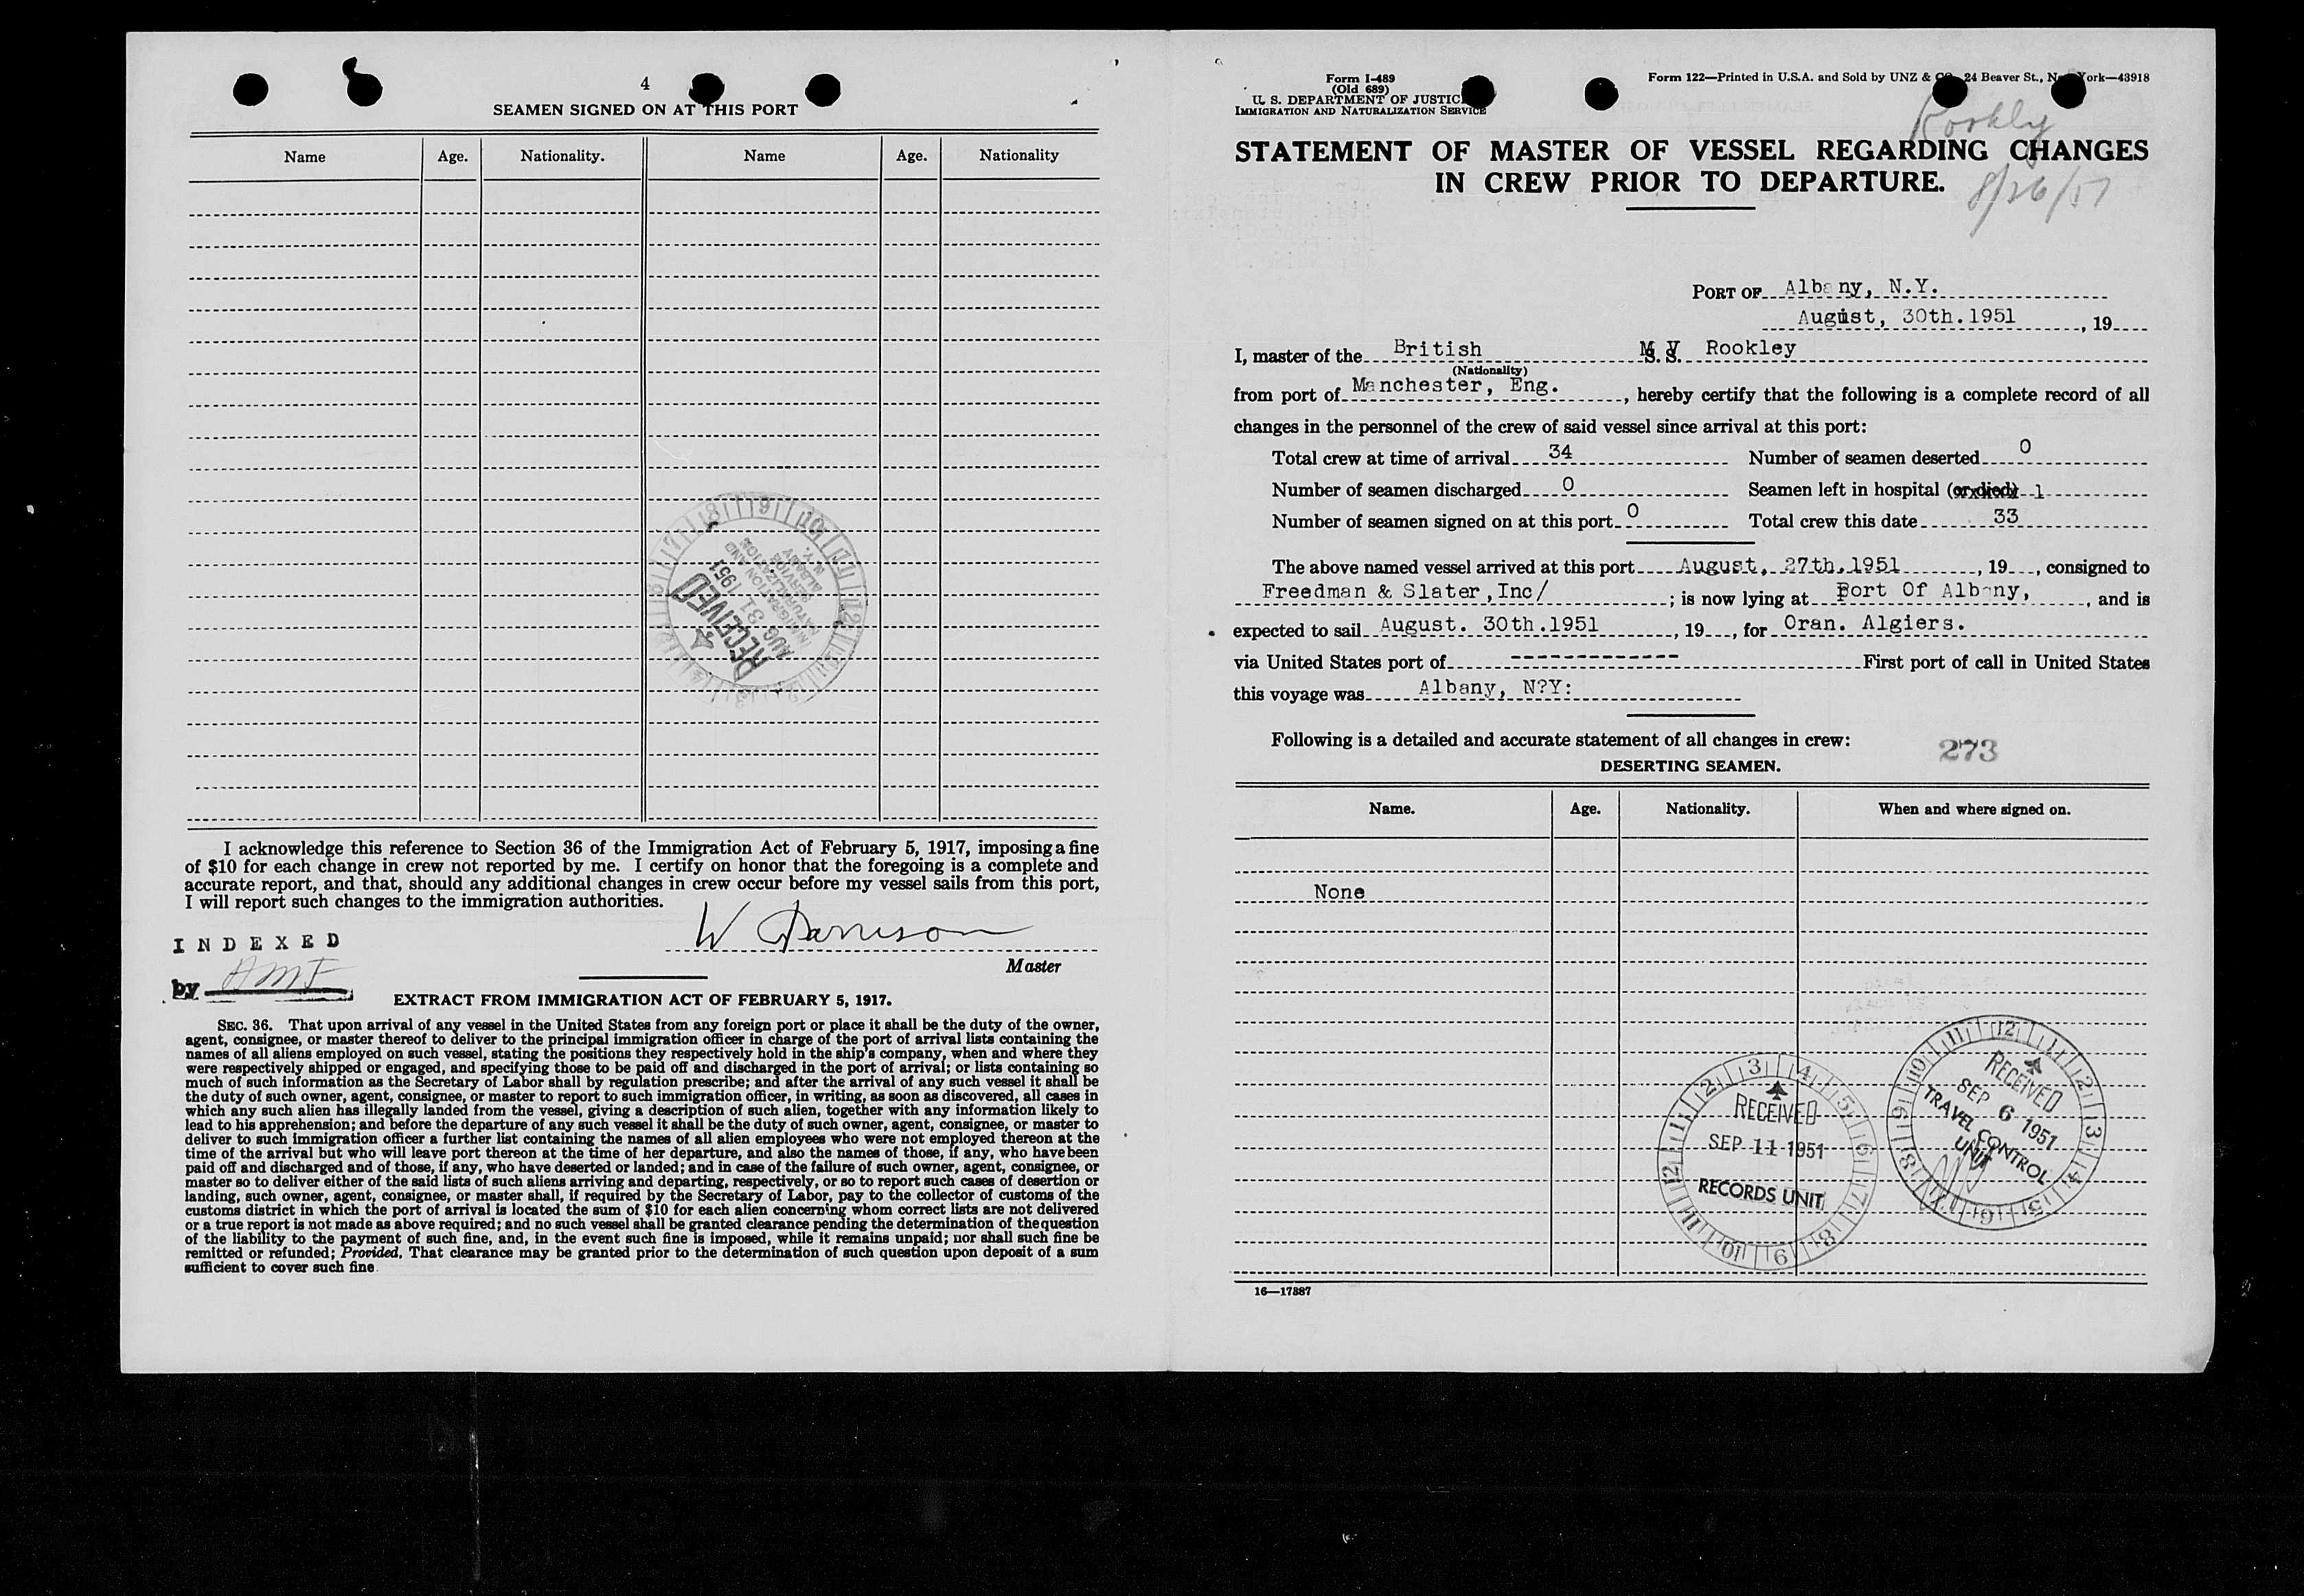 4
SEAMEN SIGNED ON AT THIS PORT
Name Age. Nationality. Name Age. Nationality
RECEIVED
AUG 31 1951
IMMIGRATION AND
NATURALIZATION
SERVICE
ALBANY
N.Y.
I acknowledge this reference to Section 36 of the Immigration Act of February 5, 1917, imposing a fine
of $10 for each change in crew not reported by me. I certify on honor that the foregoing is a complete and
accurate report, and that, should any additional changes in crew occur before my vessel sails from this port,
I will report such changes to the immigration authorities.
INDEXED
W
Master
by
EXTRACT FROM IMMIGRATION ACT OF FEBRUARY 5, 1917.
SEC. 36. That upon arrival of any vessel in the United States from any foreign port or place it shall be the duty of the owner,
agent, consignee, or master thereof to deliver to the principal immigration officer in charge of the port of arrival lists containing the
names of all aliens employed on such vessel, stating the positions they respectively hold in the ship's company, when and where they
were respectively shipped or engaged, and specifying those to be paid off and discharged in the port of arrival; or lists containing so
much of such information as the Secretary of Labor shall by regulation prescribe; and after the arrival of any such vessel it shall be
the duty of such owner, agent, consignee, or master to report to such immigration officer, in writing, as soon as discovered, all cases in
which any such alien has illegally landed from the vessel, giving a description of such alien, together with any information likely to
lead to his apprehension; and before the departure of any such vessel it shall be the duty of such owner, agent, consignee, or master to
deliver to such immigration officer a further list containing the names of all alien employees who were not employed thereon at the
time of the arrival but who will leave port thereon at the time of her departure, and also the names of those, if any, who have been
paid off and discharged and of those, if any, who have deserted or landed; and in case of the failure of such owner, agent, consignee, or
master so to deliver either of the said lists of such aliens arriving and departing, respectively, or so to report such cases of desertion or
landing, such owner, agent, consignee, or master shall, if required by the Secretary of Labor, pay to the collector of customs of the
customs district in which the port of arrival is located the sum of $10 for each alien concerning whom correct lists are not delivered
or a true report is not made as above required; and no such vessel shall be granted clearance pending the determination of the question
of the liability to the payment of such fine, and, in the event such fine is imposed, while it remains unpaid; nor shall such fine be
remitted or refunded; Provided, That clearance may be granted prior to the determination of such question upon deposit of a sum
sufficient to cover such fine
Form I-489
(Old 689)
U. S. DEPARTMENT OF JUSTIC
IMMIGRATION AND NATURALIZATION SERVICE
Form 122—Printed in U.S.A. and Sold by UNZ & CO. 24 Beaver St., New York—43918
Rookley
STATEMENT OF MASTER OF VESSEL REGARDING CHANGES
IN CREW PRIOR TO DEPARTURE.
8/26/51
PORT OF Albany, N.Y.
August, 30th.1951, 19
I, master of the British M V Rookley
S. S.
(Nationality)
from port of Manchester, Eng., hereby certify that the following is a complete record of all
changes in the personnel of the crew of said vessel since arrival at this port:
Total crew at time of arrival 34 Number of seamen deserted 0
Number of seamen discharged 0 Seamen left in hospital (or died) 1
Number of seamen signed on at this port 0 Total crew this date 33
The above named vessel arrived at this port August, 27th.1951, 19, consigned to
Freedman & Slater,Inc/; is now lying at Port Of Albany,, and is
expected to sail August. 30th.1951, 19, for Oran. Algiers.
via United States port of ------------- First port of call in United States
this voyage was Albany, N?Y:
Following is a detailed and accurate statement of all changes in crew:
273
DESERTING SEAMEN.
Name. Age. Nationality. When and where signed on.
None
RECEIVED
SEP 11 1951
RECORDS UNIT
RECEIVED
SEP 6 1951
TRAVEL CONTROL
UNIT
16—17887